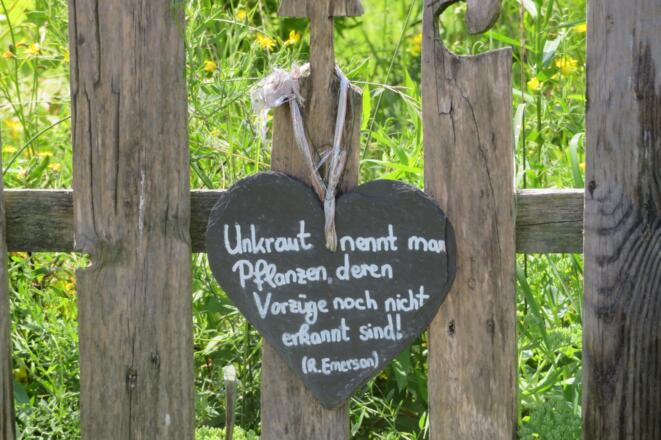 Unkraut nennt man
Pflanzen, deren
Vorzüge noch nicht
erkannt sind!
(R.Emerson)